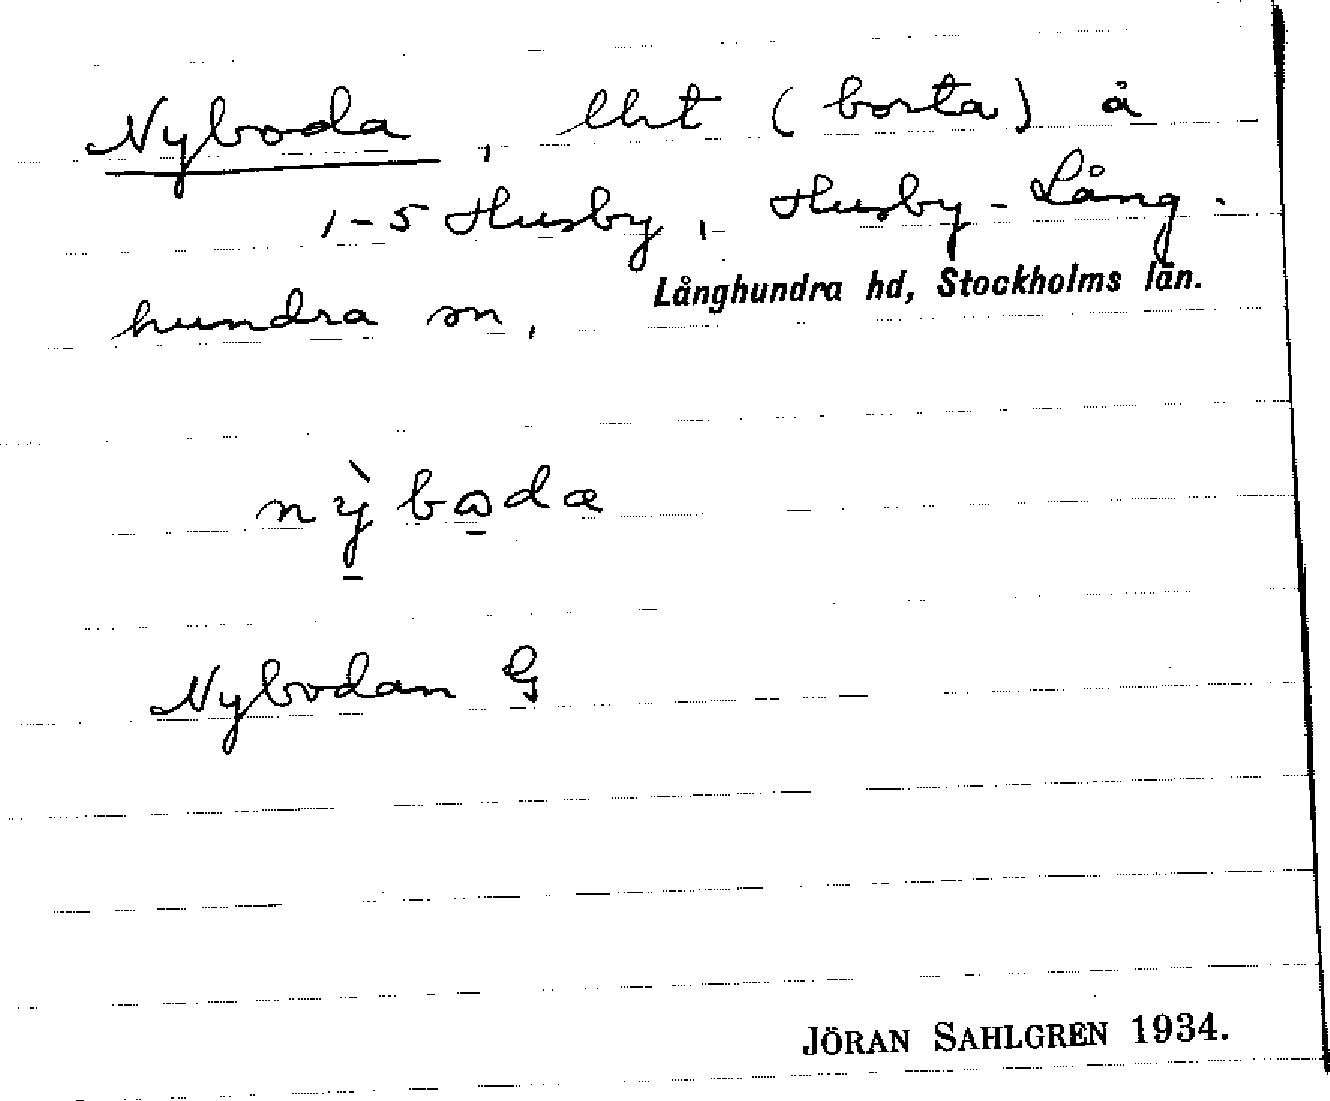 Nyboda, lht (borta) å
1-5 Husby, Husby-Lång-
hundra sn, Långhundra hd, Stockholms län.
nỳbωda
Nybodan G
JÖRAN SAHLGREN 1934.